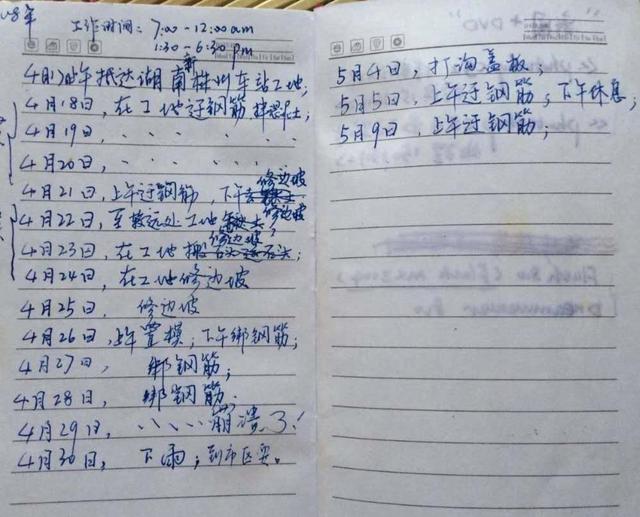 08年
工作时间: 7:00-12:00am
1:30-6:30pm
4月17日上午抵达湖南株州新车站工地;
4月18日, 在工地迂钢筋 拌混土;
4月19日, 、、、、、、
4月20日, 、、、、、、
4月21日, 上午迂钢筋, 下午去修边坡
4月22日, 至较远处工地修边坡
4月23日, 在工地修边坡;
4月24日, 在工地修边坡
4月25日, 修边坡
4月26日, 上午置模; 下午绑钢筋;
4月27日, 绑钢筋;
4月28日, 绑钢筋.
4月29日, 、、、、崩溃了!
4月30日, 下雨; 到市区耍。
5月4日, 打沟盖板;
5月5日, 上午迂钢筋; 下午休息;
5月9日, 上午迂钢筋;